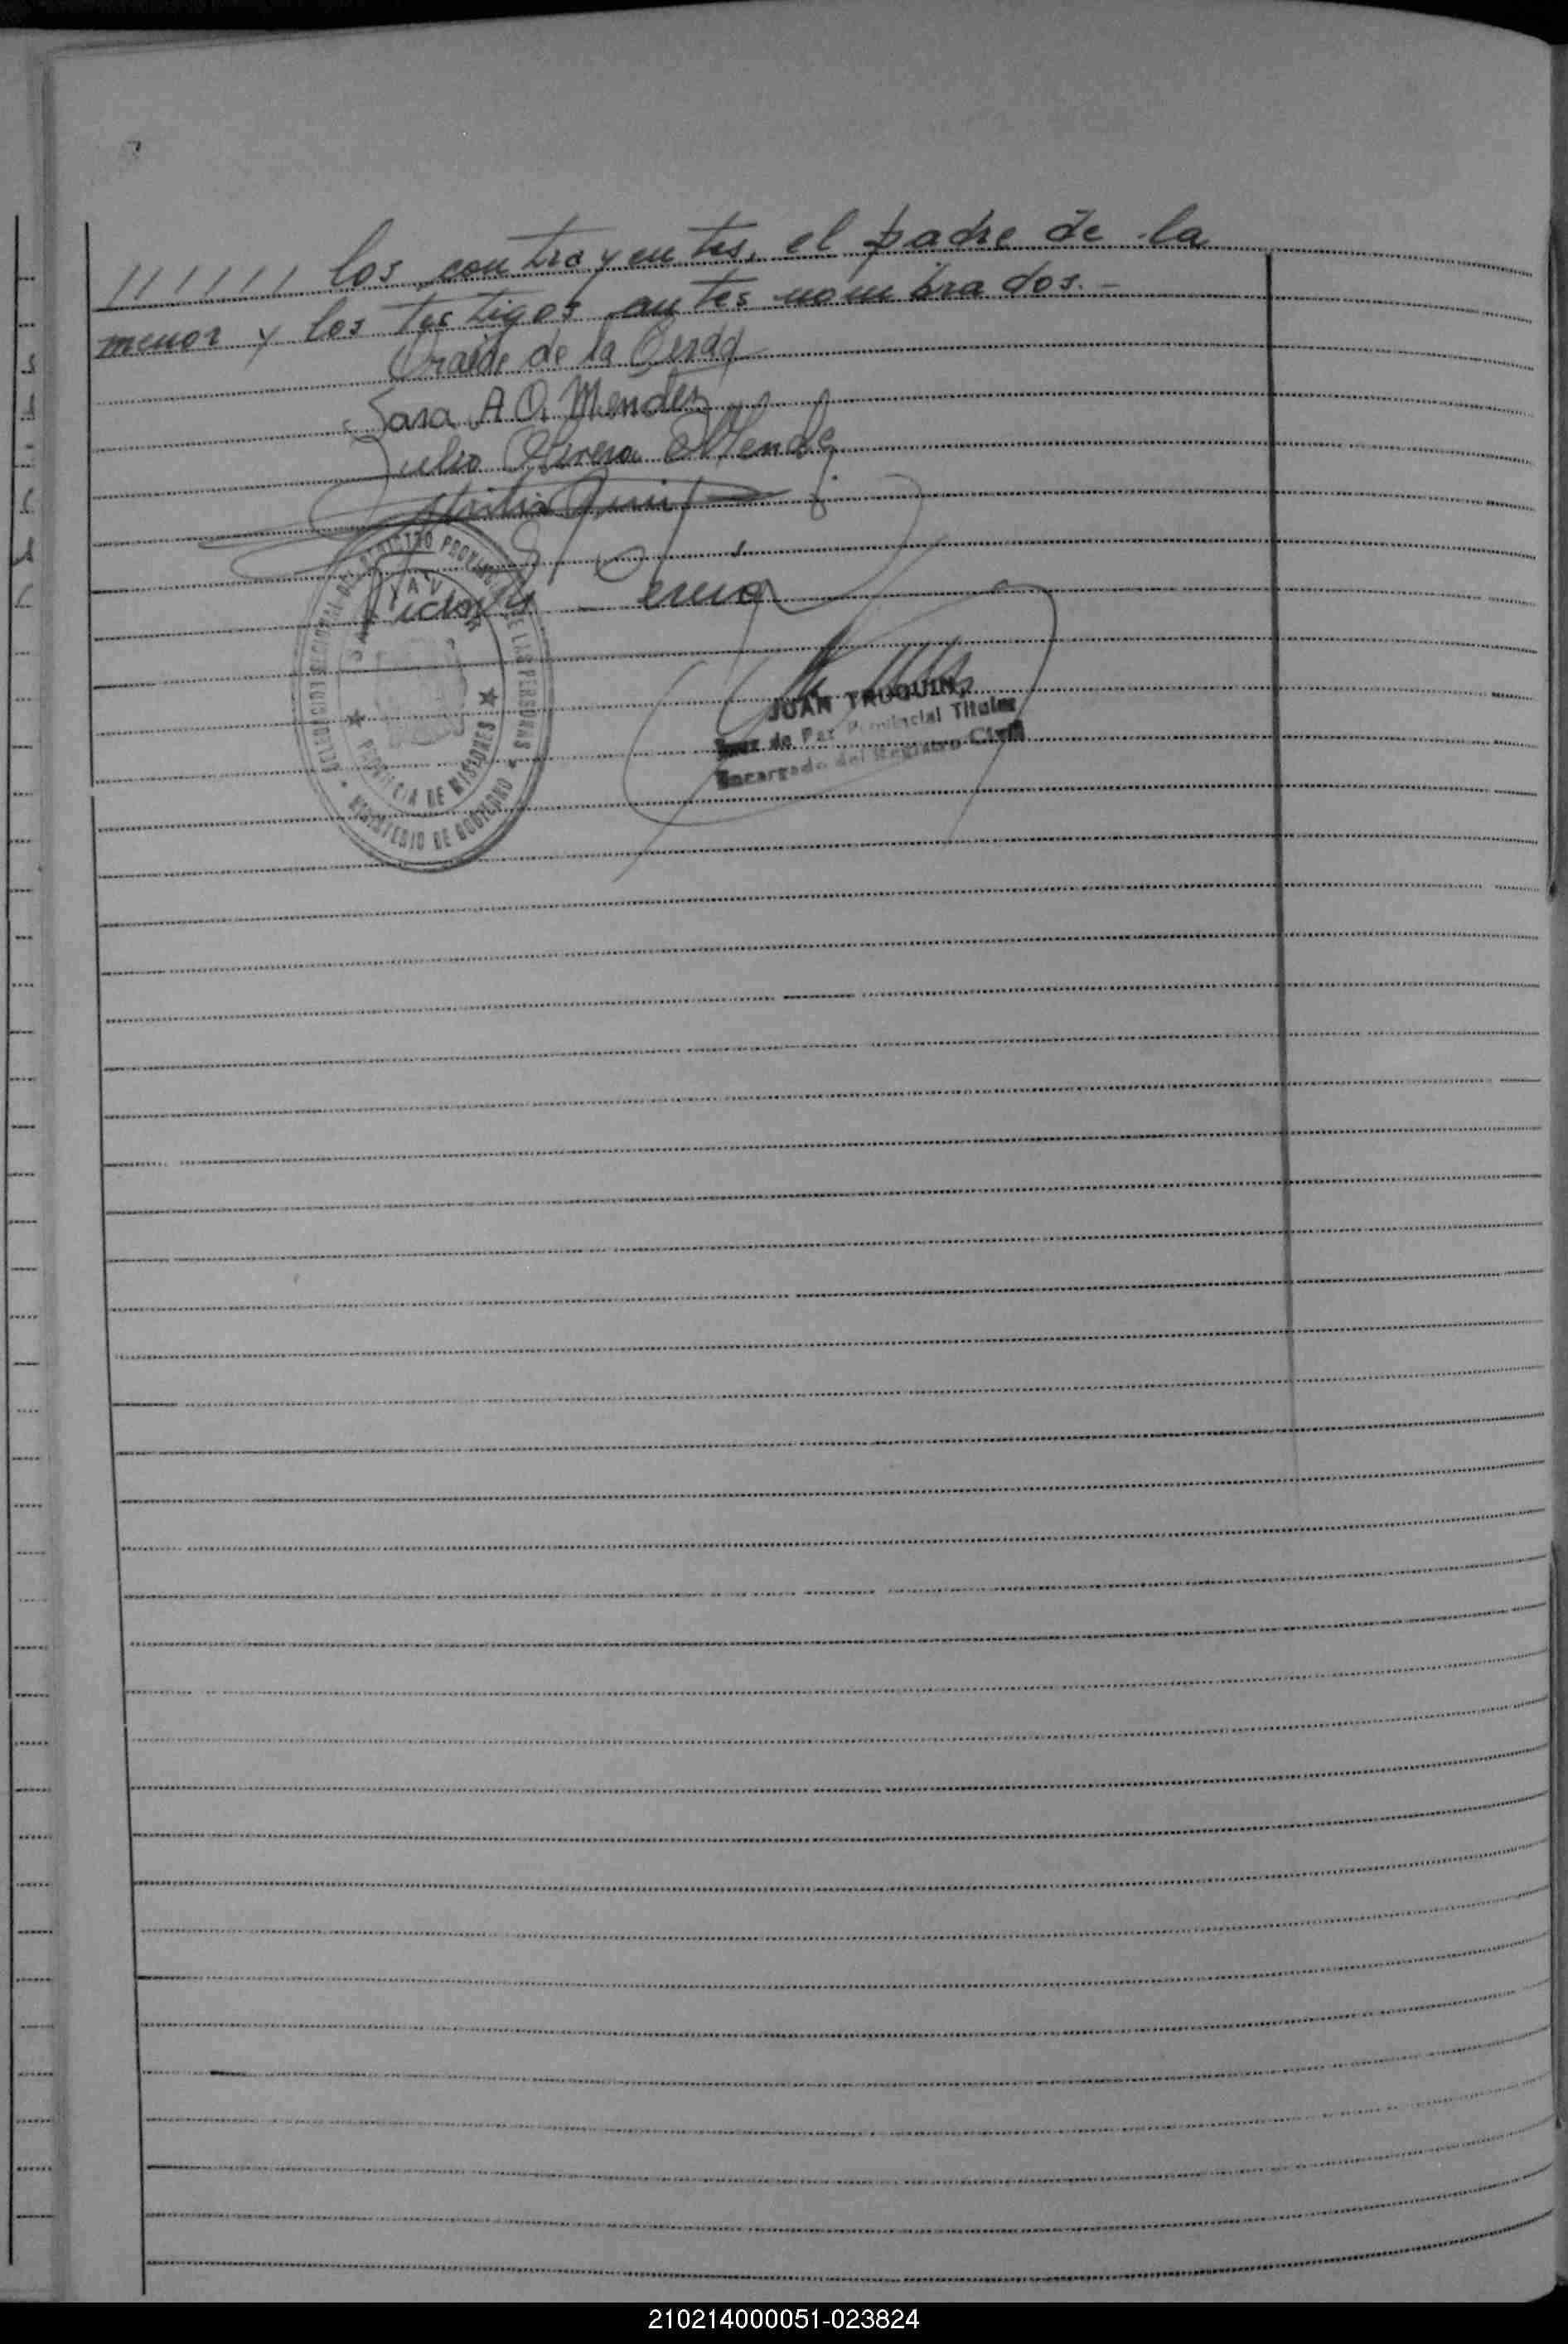 ////// los contrayentes, el padre de la
menor y los testigos antes nombrados.-
de la
Sara A. O. Mendez
Julio Olivera Mendez
DELEGACION SECCIONAL DEL REGISTRO PROVINCIAL DE LAS PERSONAS
MINISTERIO DE GOBIERNO
PROVINCIA DE MISIONES
JUAN TRUQUIN
Juez de Paz Provincial Titular
Encargado del Registro Civil
210214000051-023824